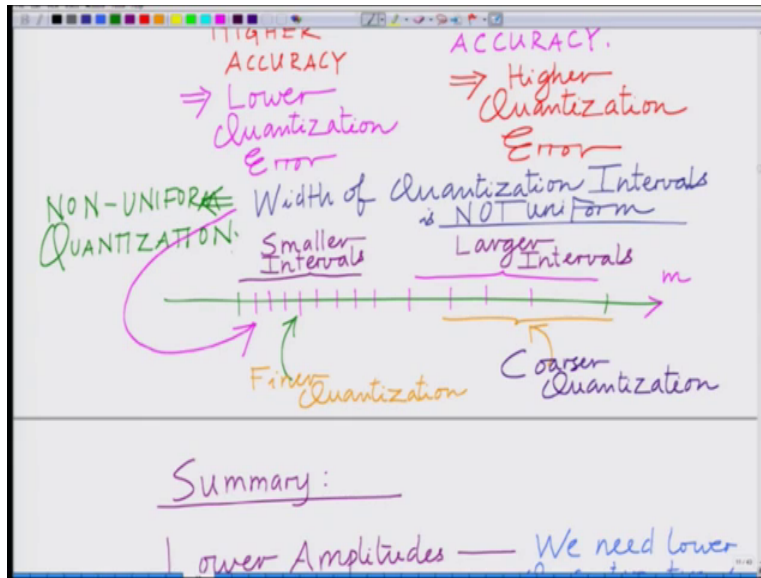 HIGHER
ACCURACY
⇒ Lower
Quantization
Error
ACCURACY.
⇒ Higher
Quantization
Error
NON-UNIFORM
QUANTIZATION.
⇐ Width of Quantization Intervals
is NOT uniform
Smaller
Intervals
Larger
Intervals
m
Finer
Quantization
Coarser
Quantization
Summary:
Lower Amplitudes — We need lower